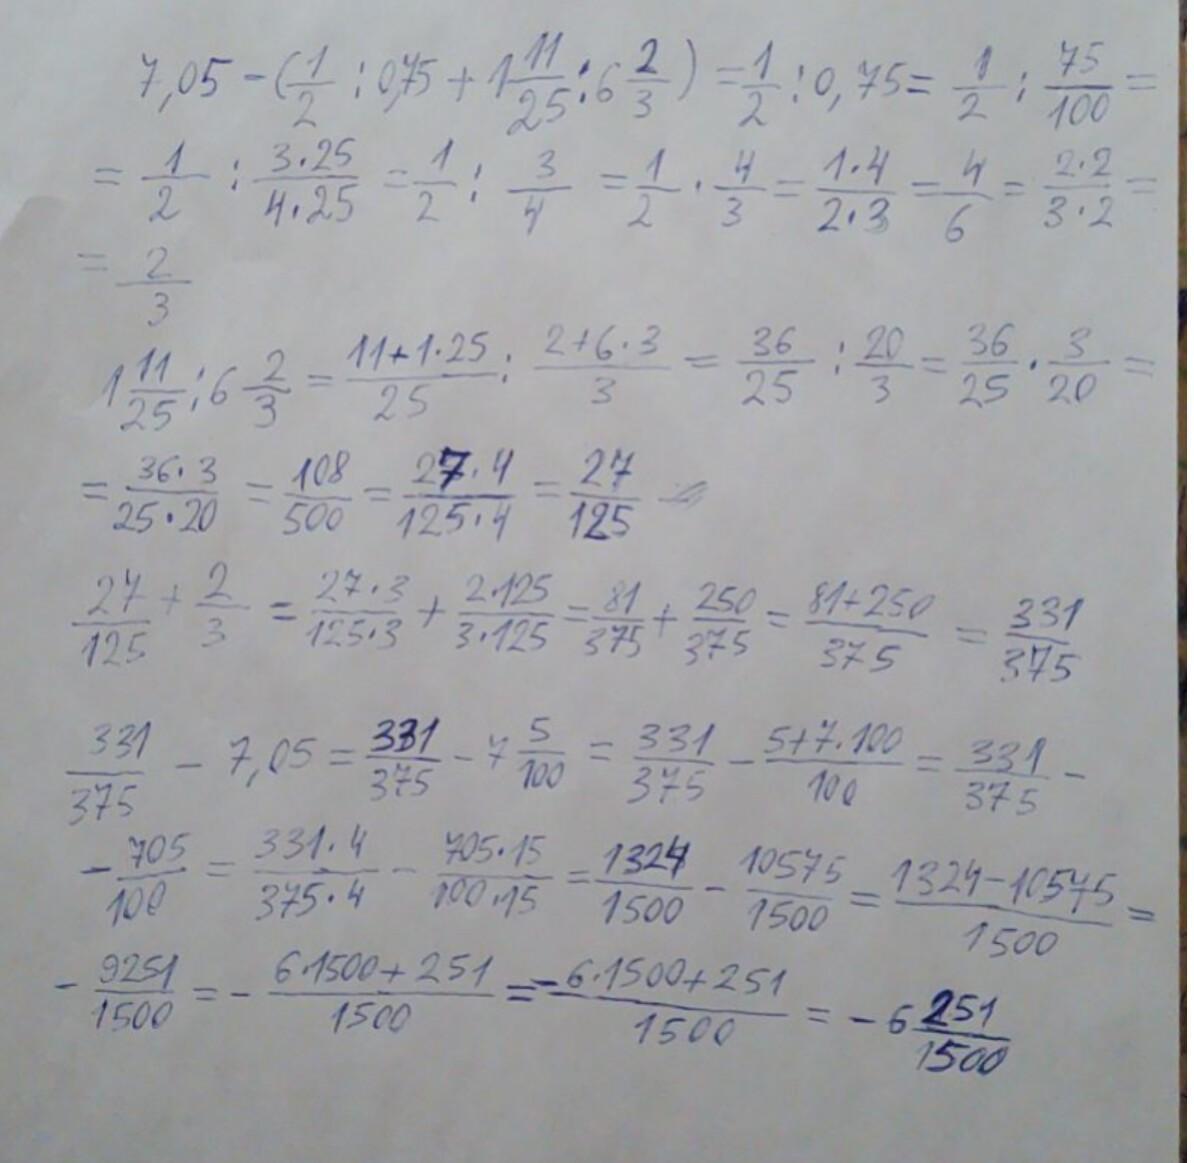 7,05 - (1/2 : 0,75 + 1 11/25 : 6 2/3) = 1/2 : 0,75 = 1/2 : 75/100 =
= 1/2 : 3·25/4·25 = 1/2 : 3/4 = 1/2 · 4/3 = 1·4/2·3 = 4/6 = 2·2/3·2 =
= 2/3
1 11/25 : 6 2/3 = 11+1·25/25 : 2+6·3/3 = 36/25 : 20/3 = 36/25 · 3/20 =
= 36·3/25·20 = 108/500 = 27·4/125·4 = 27/125
27/125 + 2/3 = 27·3/125·3 + 2·125/3·125 = 81/375 + 250/375 = 81+250/375 = 331/375
331/375 - 7,05 = 331/375 - 7 5/100 = 331/375 - 5+7·100/100 = 331/375 -
- 705/100 = 331·4/375·4 - 705·15/100·15 = 1324/1500 - 10575/1500 = 1324-10575/1500 =
- 9251/1500 = - 6·1500+251/1500 = - 6·1500+251/1500 = - 6 251/1500